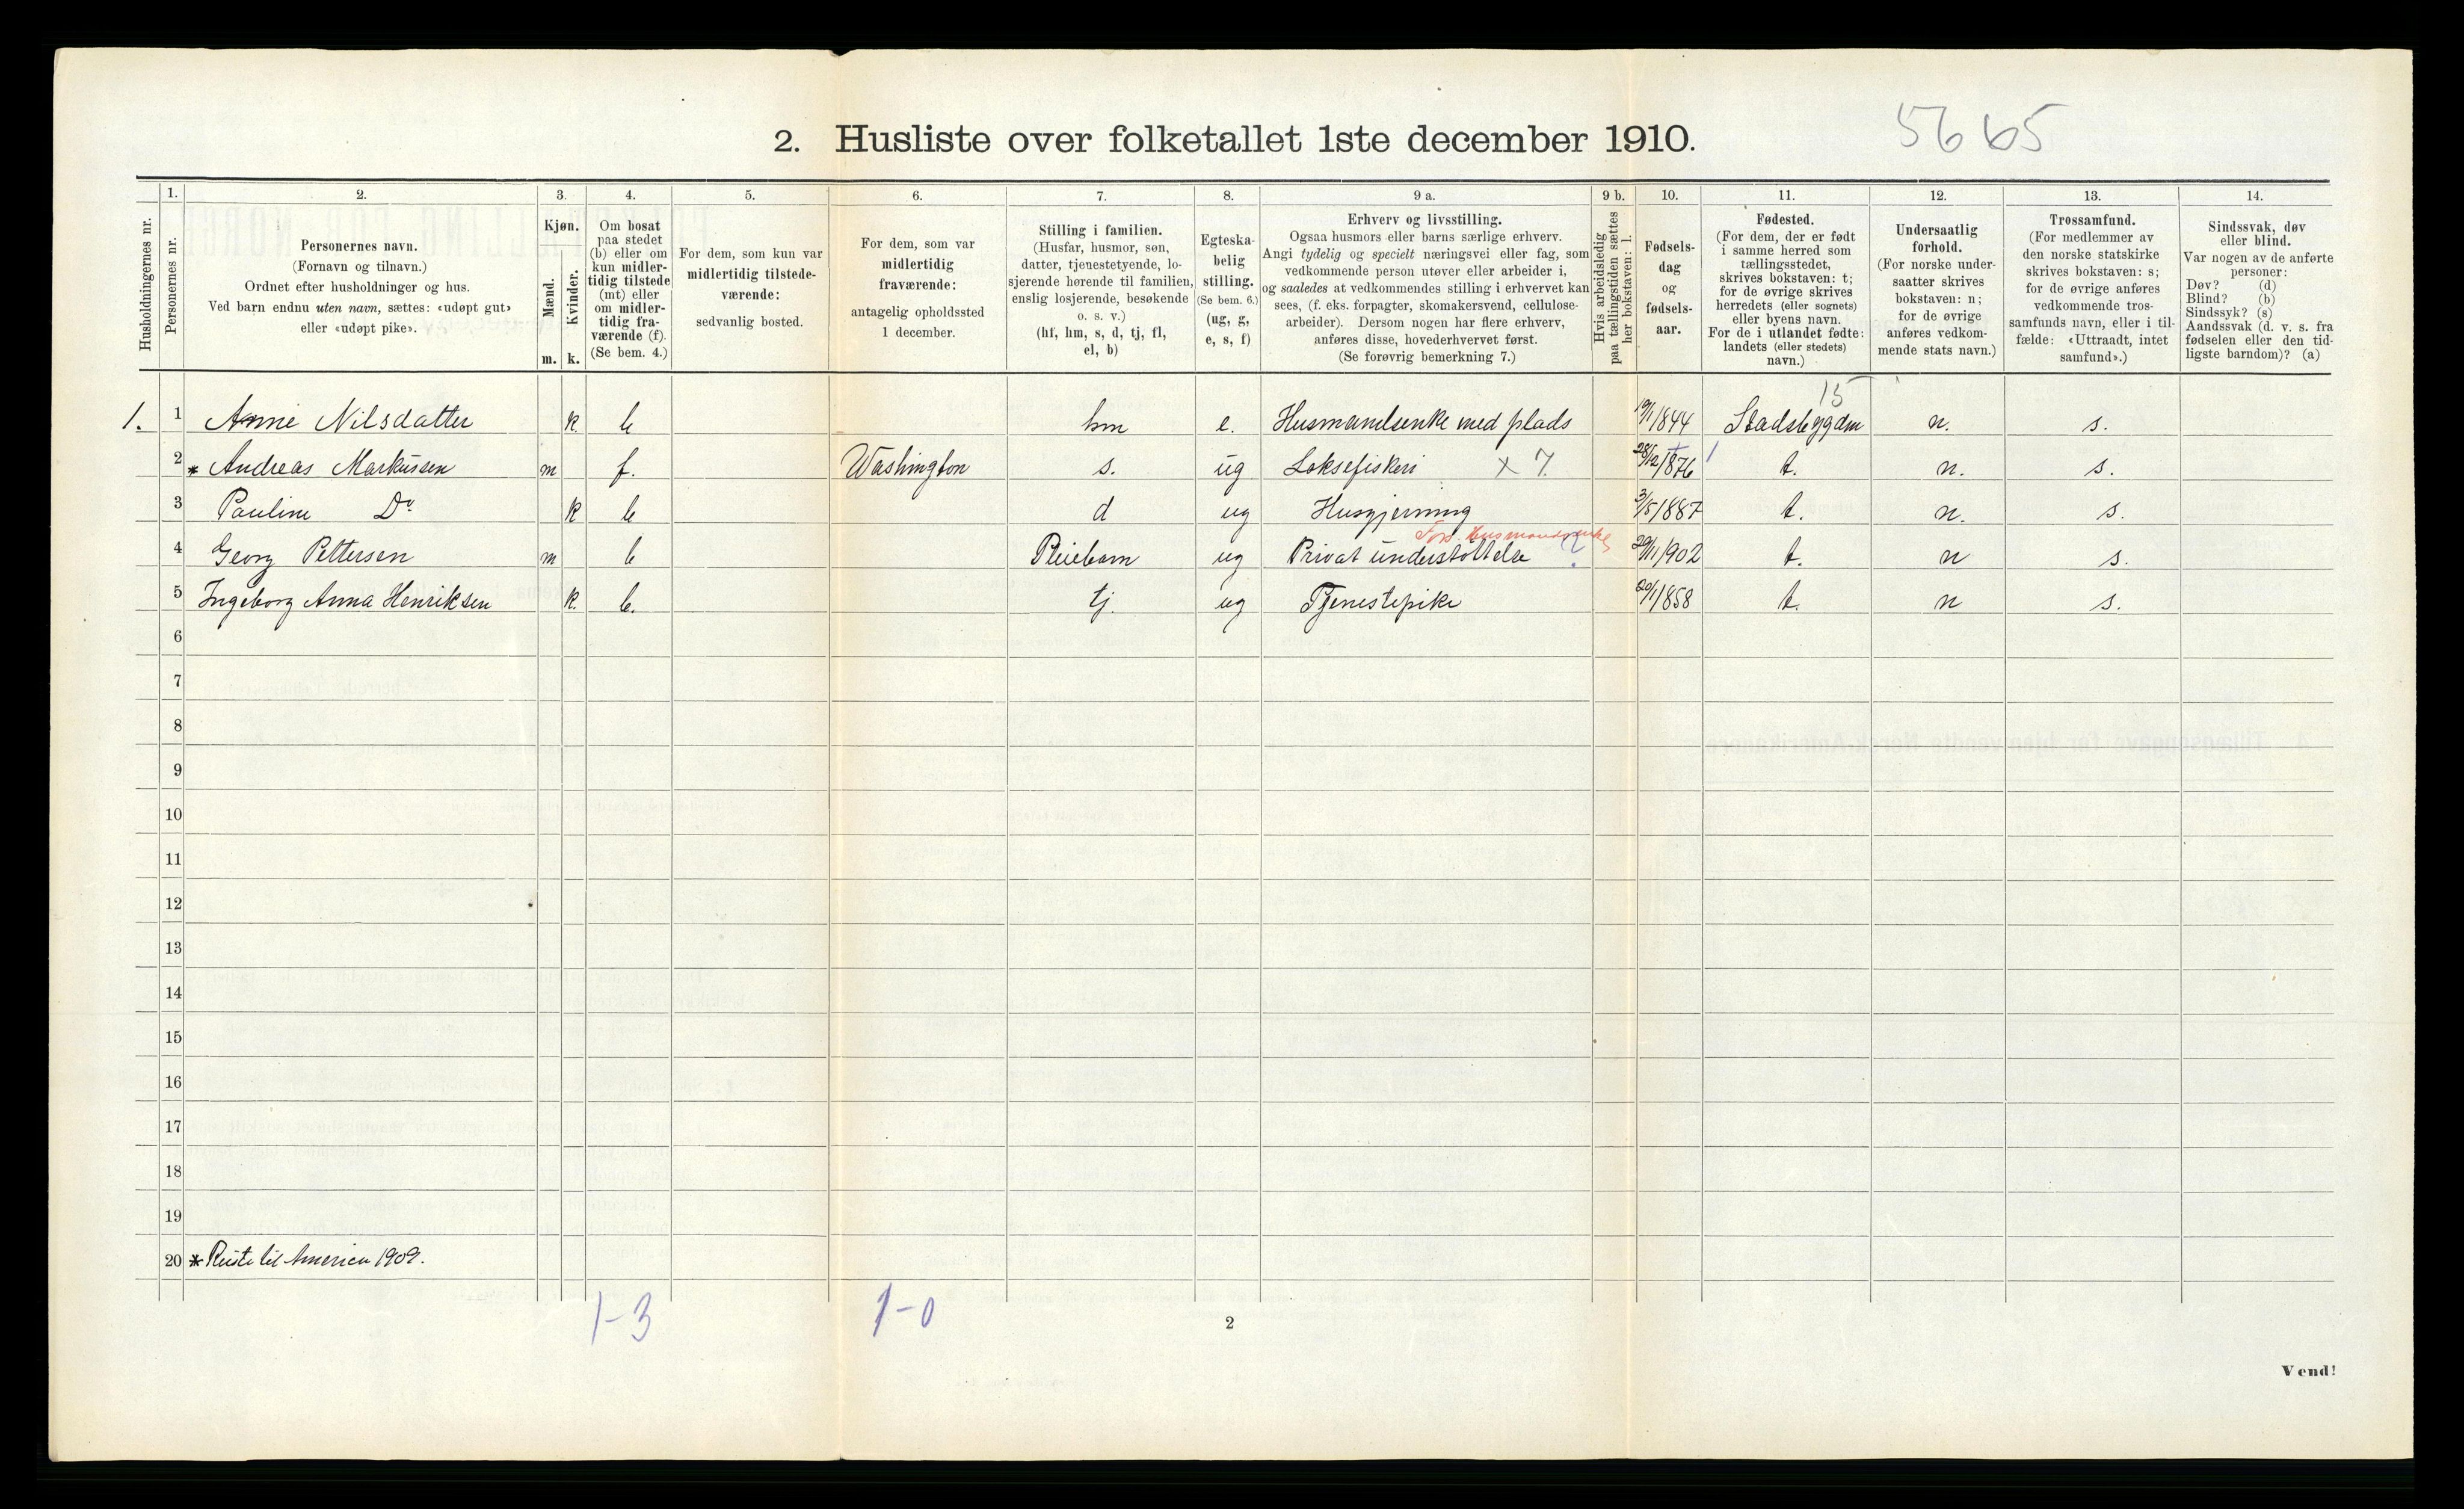 2. Husliste over folketallet 1ste december 1910.
5665
Husholdningernes nr.
1.
Personernes nr.
2.
Personernes navn.
(Fornavn og tilnavn.)
Ordnet efter husholdninger og hus.
Ved barn endnu uten navn, sættes: «udøpt gut»
eller «udøpt pike».
3.
Kjøn.
Mænd.
m.
Kvinder.
k.
4.
Om bosat
paa stedet
(b) eller om
kun midler-
tidig tilstede
(mt) eller
om midler-
tidig fra-
værende (f).
(Se bem. 4.)
5.
For dem, som kun var
midlertidig tilstede-
værende:
sedvanlig bosted.
6.
For dem, som var
midlertidig
fraværende:
antagelig opholdssted
1 december.
7.
Stilling i familien.
(Husfar, husmor, søn,
datter, tjenestetyende, lo-
sjerende hørende til familien,
enslig losjerende, besøkende
o. s. v.)
(hf, hm, s, d, tj, fl,
el, b)
8.
Egteska-
belig
stilling.
(Se bem. 6.)
(ug, g,
e, s, f)
9 a.
Erhverv og livsstilling.
Ogsaa husmors eller barns særlige erhverv.
Angi tydelig og specielt næringsvei eller fag, som
vedkommende person utøver eller arbeider i,
og saaledes at vedkommendes stilling i erhvervet kan
sees, (f. eks. forpagter, skomakersvend, cellulose-
arbeider). Dersom nogen har flere erhverv,
anføres disse, hovederhvervet først.
(Se forøvrig bemerkning 7.)
9 b.
Hvis arbeidsledig
paa tællingstiden sættes
her bokstaven: l.
10.
Fødsels-
dag
og
fødsels-
aar.
11.
Fødested.
(For dem, der er født
i samme herred som
tællingsstedet,
skrives bokstaven: t;
for de øvrige skrives
herredets (eller sognets)
eller byens navn.
For de i utlandet fødte:
landets (eller stedets)
navn.)
12.
Undersaatlig
forhold.
(For norske under-
saatter skrives
bokstaven: n;
for de øvrige
anføres vedkom-
mende stats navn.)
13.
Trossamfund.
(For medlemmer av
den norske statskirke
skrives bokstaven: s;
for de øvrige anføres
vedkommende tros-
samfunds navn, eller i til-
fælde: «Uttraadt, intet
samfund».)
14.
Sindssvak, døv
eller blind.
Var nogen av de anførte
personer:
Døv? (d)
Blind? (b)
Sindssyk? (s)
Aandssvak (d. v. s. fra
fødselen eller den tid-
ligste barndom)? (a)
15
1. 1 Anne Nilsdatter k. b hm e. Husmandsenke med plads 19/1 1844 Stadsbygden n. s.
2 * Andreas Markussen m f. Washington s. ug Laksefiskeri x 7. 28/12 1876 t. n. s.
3 Pauline Do k b d ug Husgjerning 3/5 1887 t. n. s.
Fors. Husmandsenke
4 Georg Pettersen m b Pleiebarn ug Privat understøttelse ? 29/11 1902 t. n s.
5 Ingeborg Anna Henriksen k. b. tj. ug Tjenestepike 20/1 1858 t. n s.
6
7
8
9
10
11
12
13
14
15
16
17
18
19
20 * Reiste til America 1909.
1-3 1-0
2
Vend!